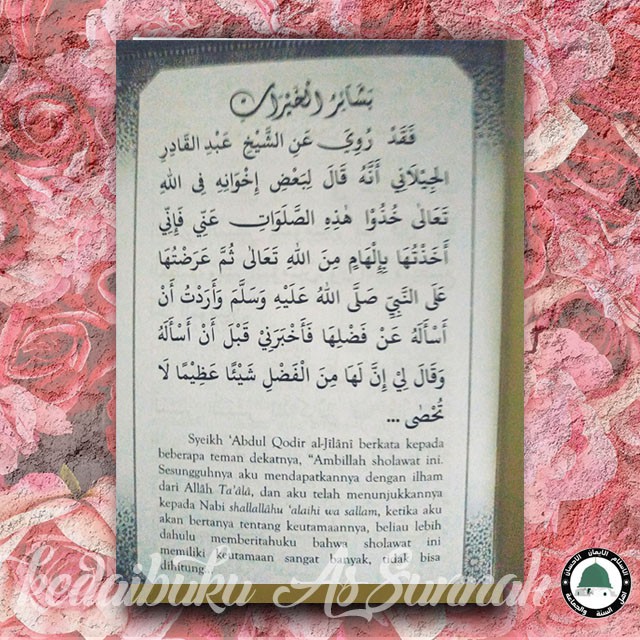 بَشَائِرُ الْخَيْرَاتِ
فَقَدْ رُوِيَ عَنِ الشَّيْخِ عَبْدِ الْقَادِرِ
الْجِيْلَانِي أَنَّهُ قَالَ لِبَعْضِ إِخْوَانِهِ فِي اللهِ
تَعَالَى خُذُوْا هٰذِهِ الصَّلَوَاتِ عَنِّي فَإِنِّي
أَخَذْتُهَا بِإِلْهَامٍ مِنَ اللهِ تَعَالَى ثُمَّ عَرَضْتُهَا
عَلَى النَّبِيِّ صَلَّى اللهُ عَلَيْهِ وَسَلَّمَ وَأَرَدْتُ أَنْ
أَسْأَلَهُ عَنْ فَضْلِهَا فَأَخْبَرَنِيْ قَبْلَ أَنْ أَسْأَلَهُ
وَقَالَ لِيْ إِنَّ لَهَا مِنَ الْفَضْلِ شَيْئًا عَظِيْمًا لَا
تُحْصٰى ...
Syeikh 'Abdul Qodir al-Jîlânî berkata kepada
beberapa teman dekatnya, "Ambillah sholawat ini.
Sesungguhnya aku mendapatkannya dengan ilham
dari Allâh Ta'âlâ, dan aku telah menunjukkannya
kepada Nabi shallallâhu 'alaihi wa sallam, ketika aku
akan bertanya tentang keutamaannya, beliau lebih
dahulu memberitahuku bahwa sholawat ini
memiliki keutamaan sangat banyak, tidak bisa
dihitung
kedaibuku As Sunnah
الإسلام الإيمان الإحسان
أهل السنة والجماعة